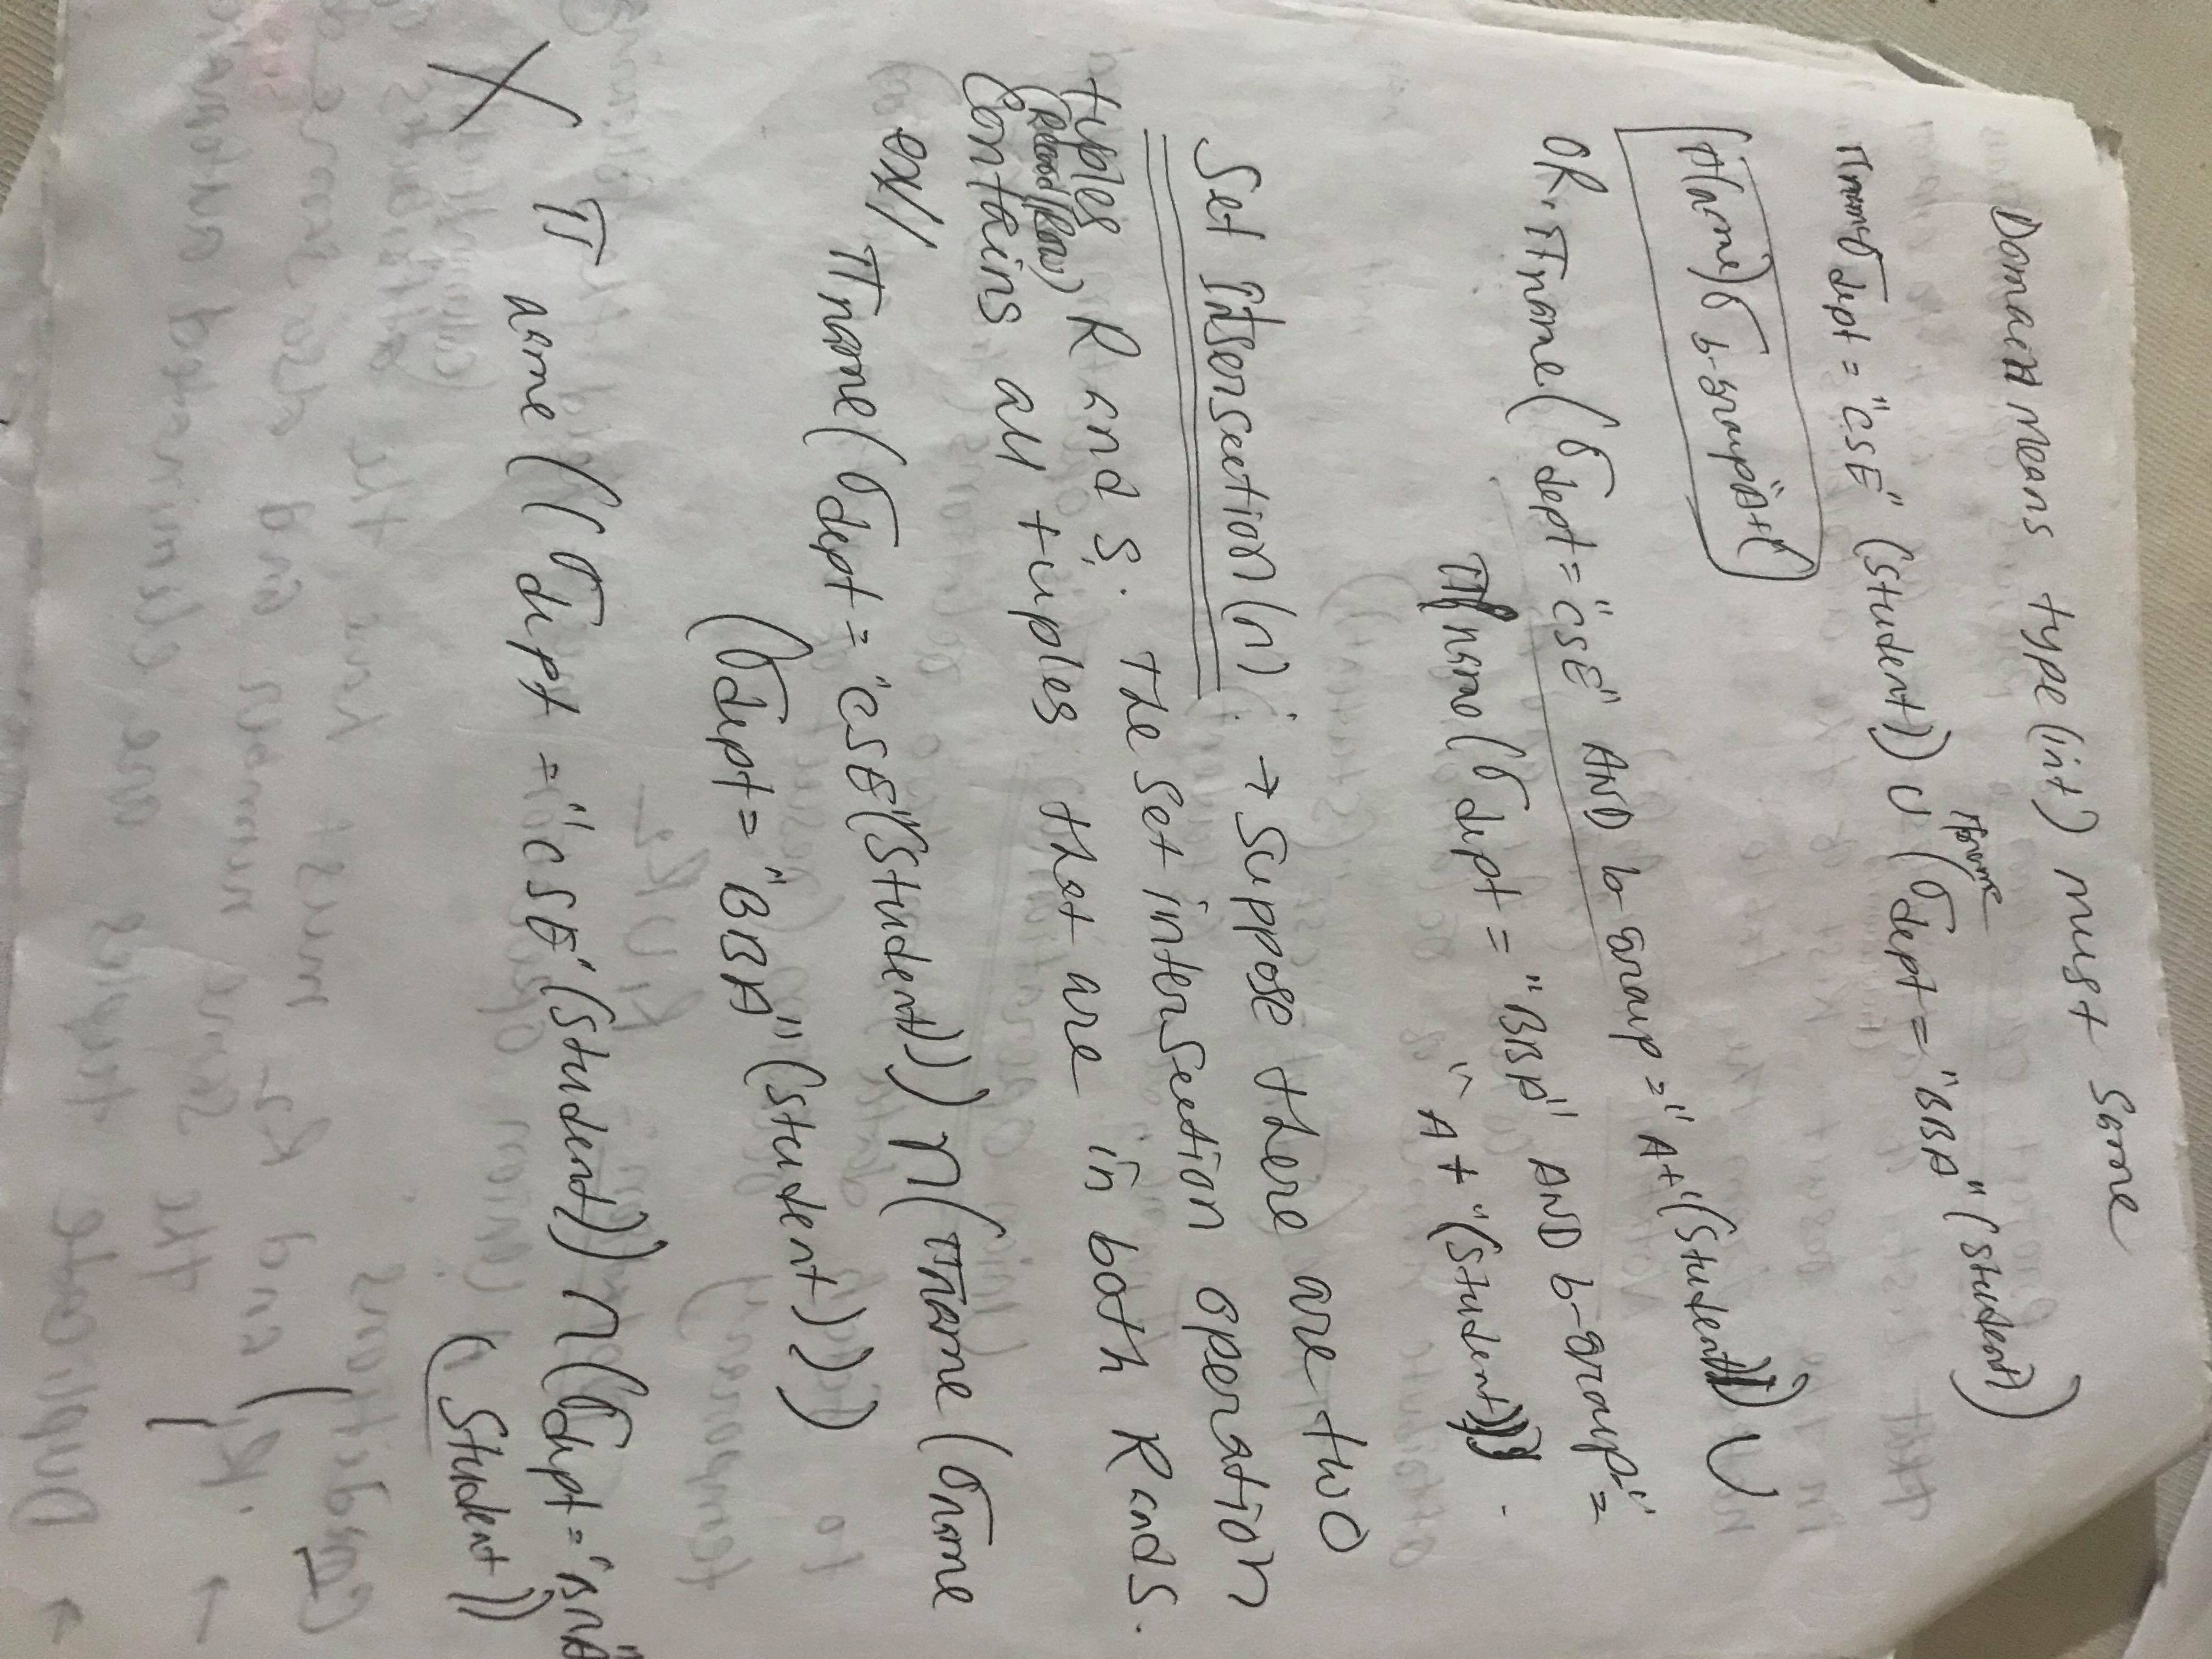 Domain means type (int) must same
πname σdept = "CSE" (Student)) ∪ πname (σdept = "BBA" (Student))
(π(name) σ b-group "A+"
OR, πname (σdept = "CSE" AND b-group = "A+" (Student))) ∪
πname (σdept = "BBA" AND b-group =
"A+" (Student))) .
Set Intsersection (∩) : → Suppose there are two
tuples R and S. The set intersection operation
(Record/Row)
Contains all tuples that are in both R and S.
ex// πname (σdept = "CSE" (Student))) ∩ (πname (σname
(σdept = "BBA" (Student))))
X π name ((σdept = "CSE" (Student)) ∩ (σdept = "BBA"
(Student))